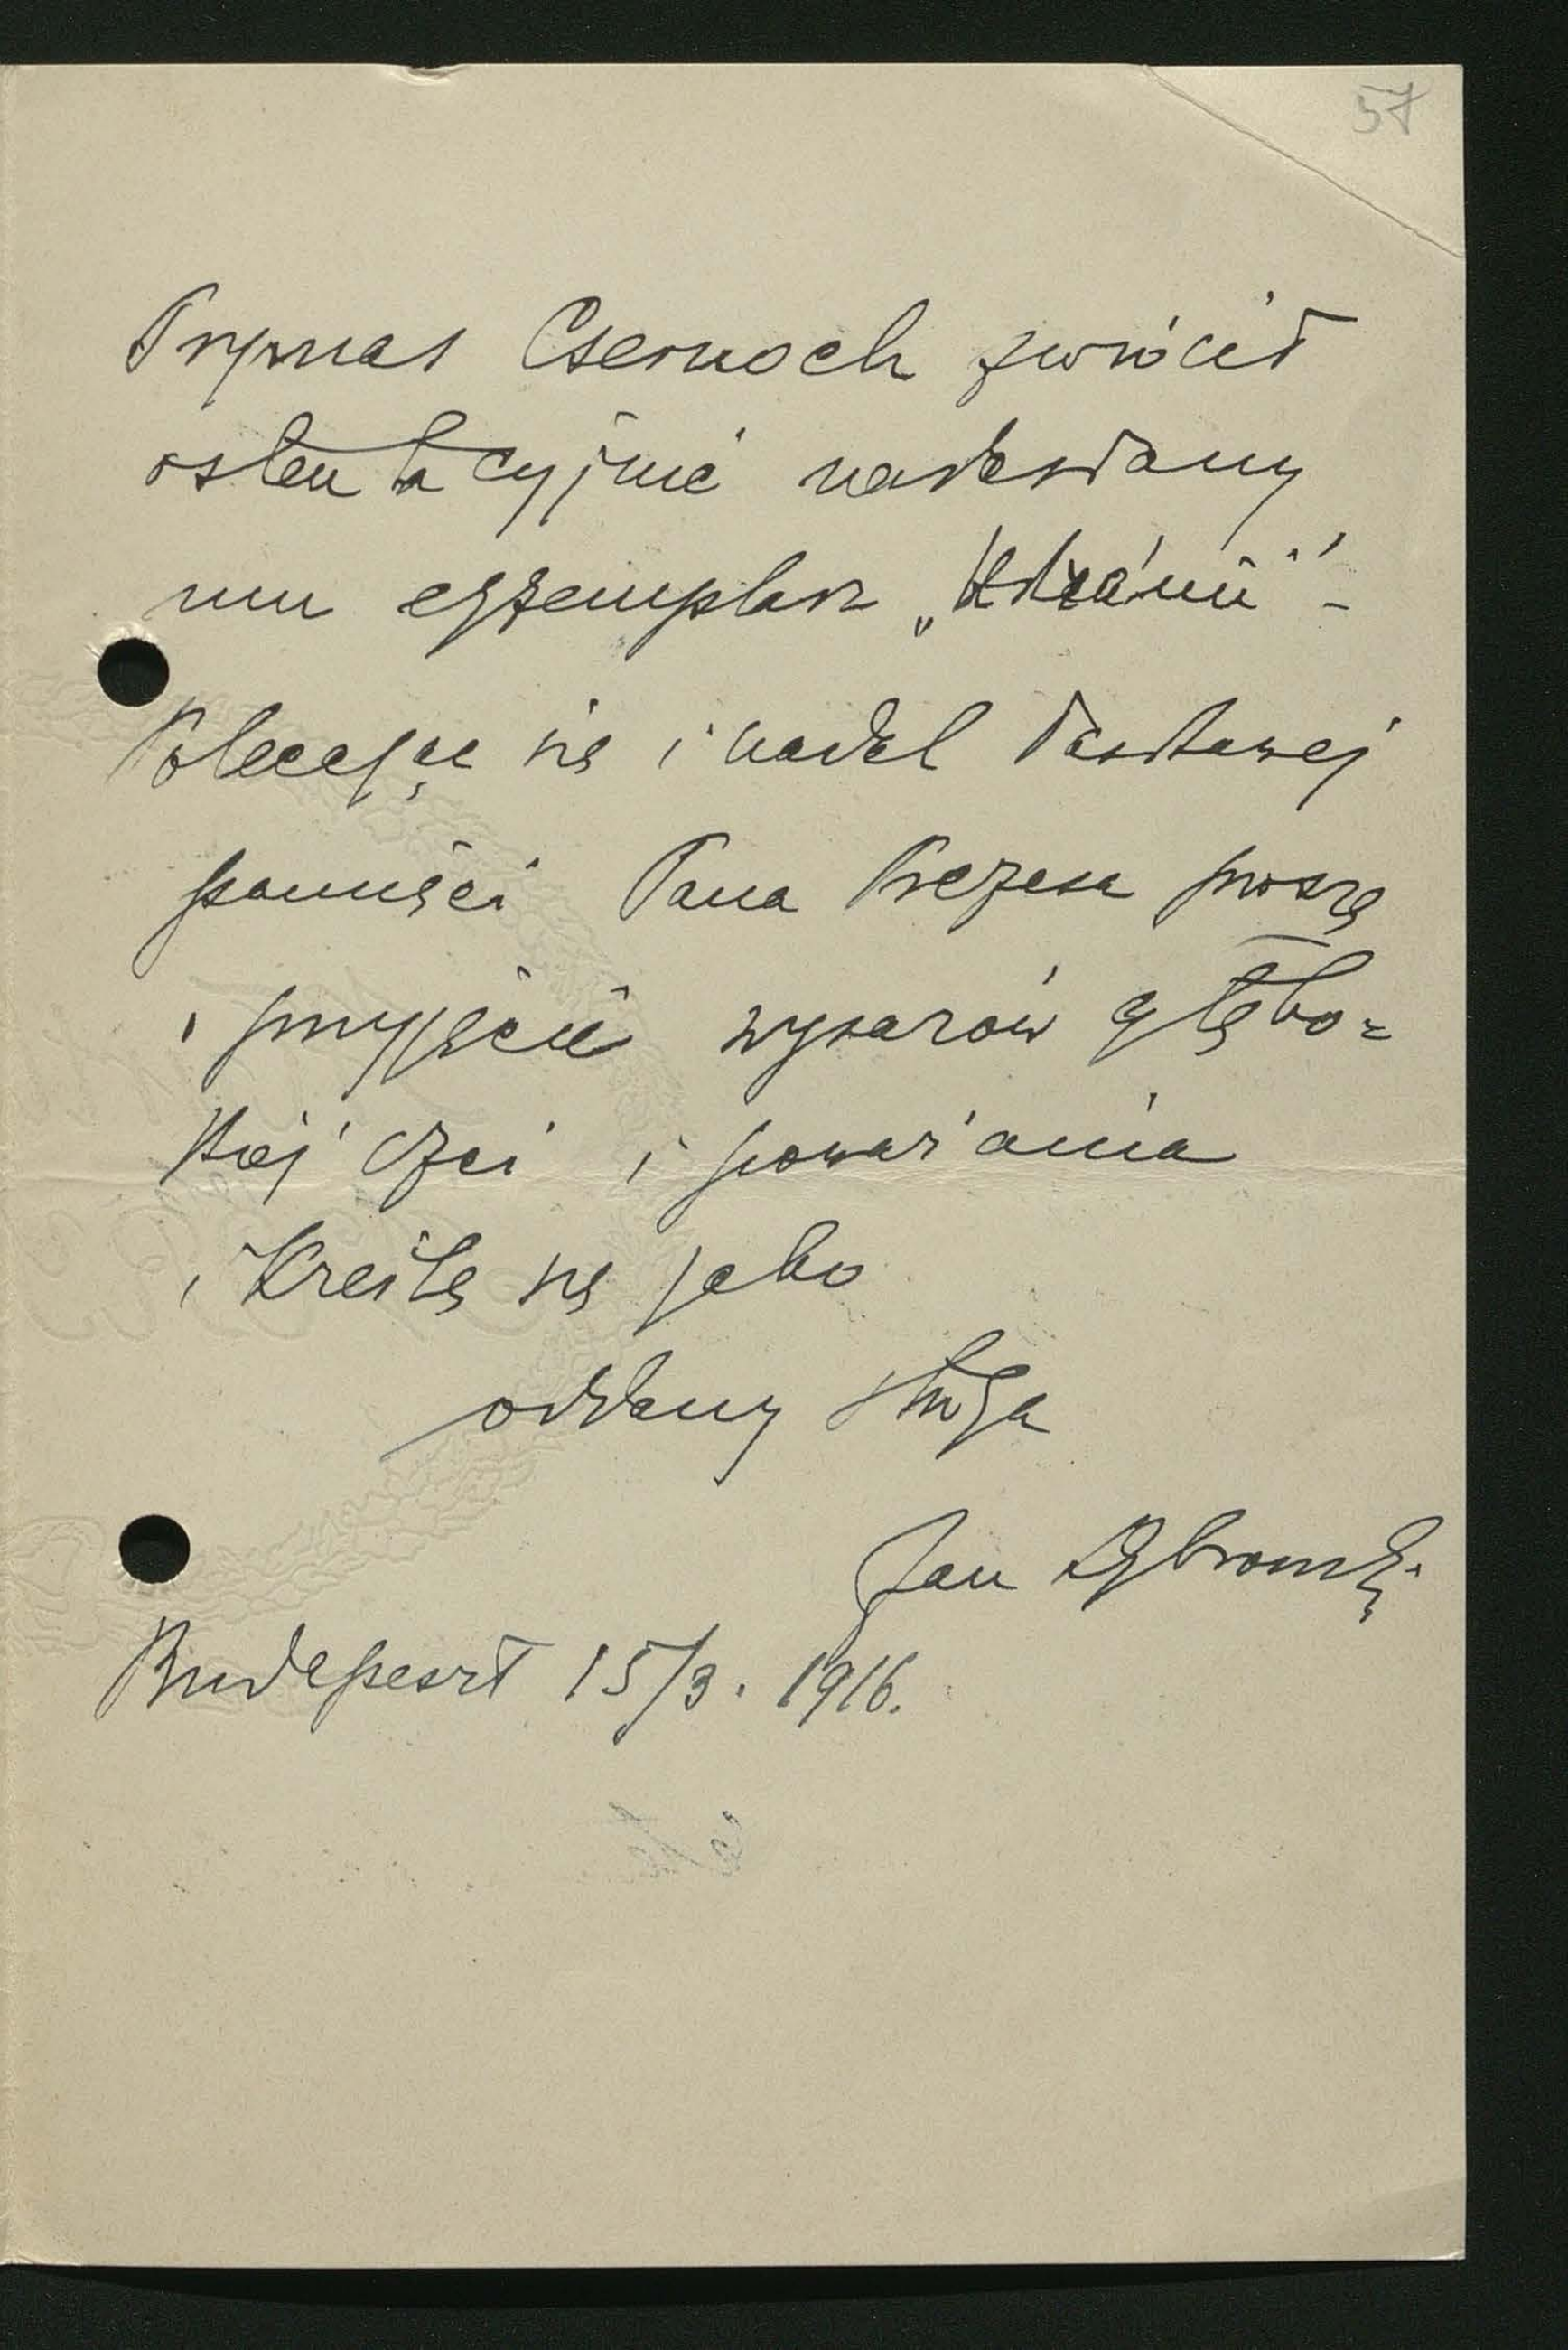 57
Prymas Csernoch zwrócił
ostentacyjnie nadesłany
mu egzemplarz
Polecając się i nadal łaskawej
pamięci Pana Prezesa proszę
o przyjęcie wyrazów głębo=
kiej czci i poważania
i kreślę się jako
oddany sługa
Jan Dąbrowski
Budapeszt 15/3. 1916.